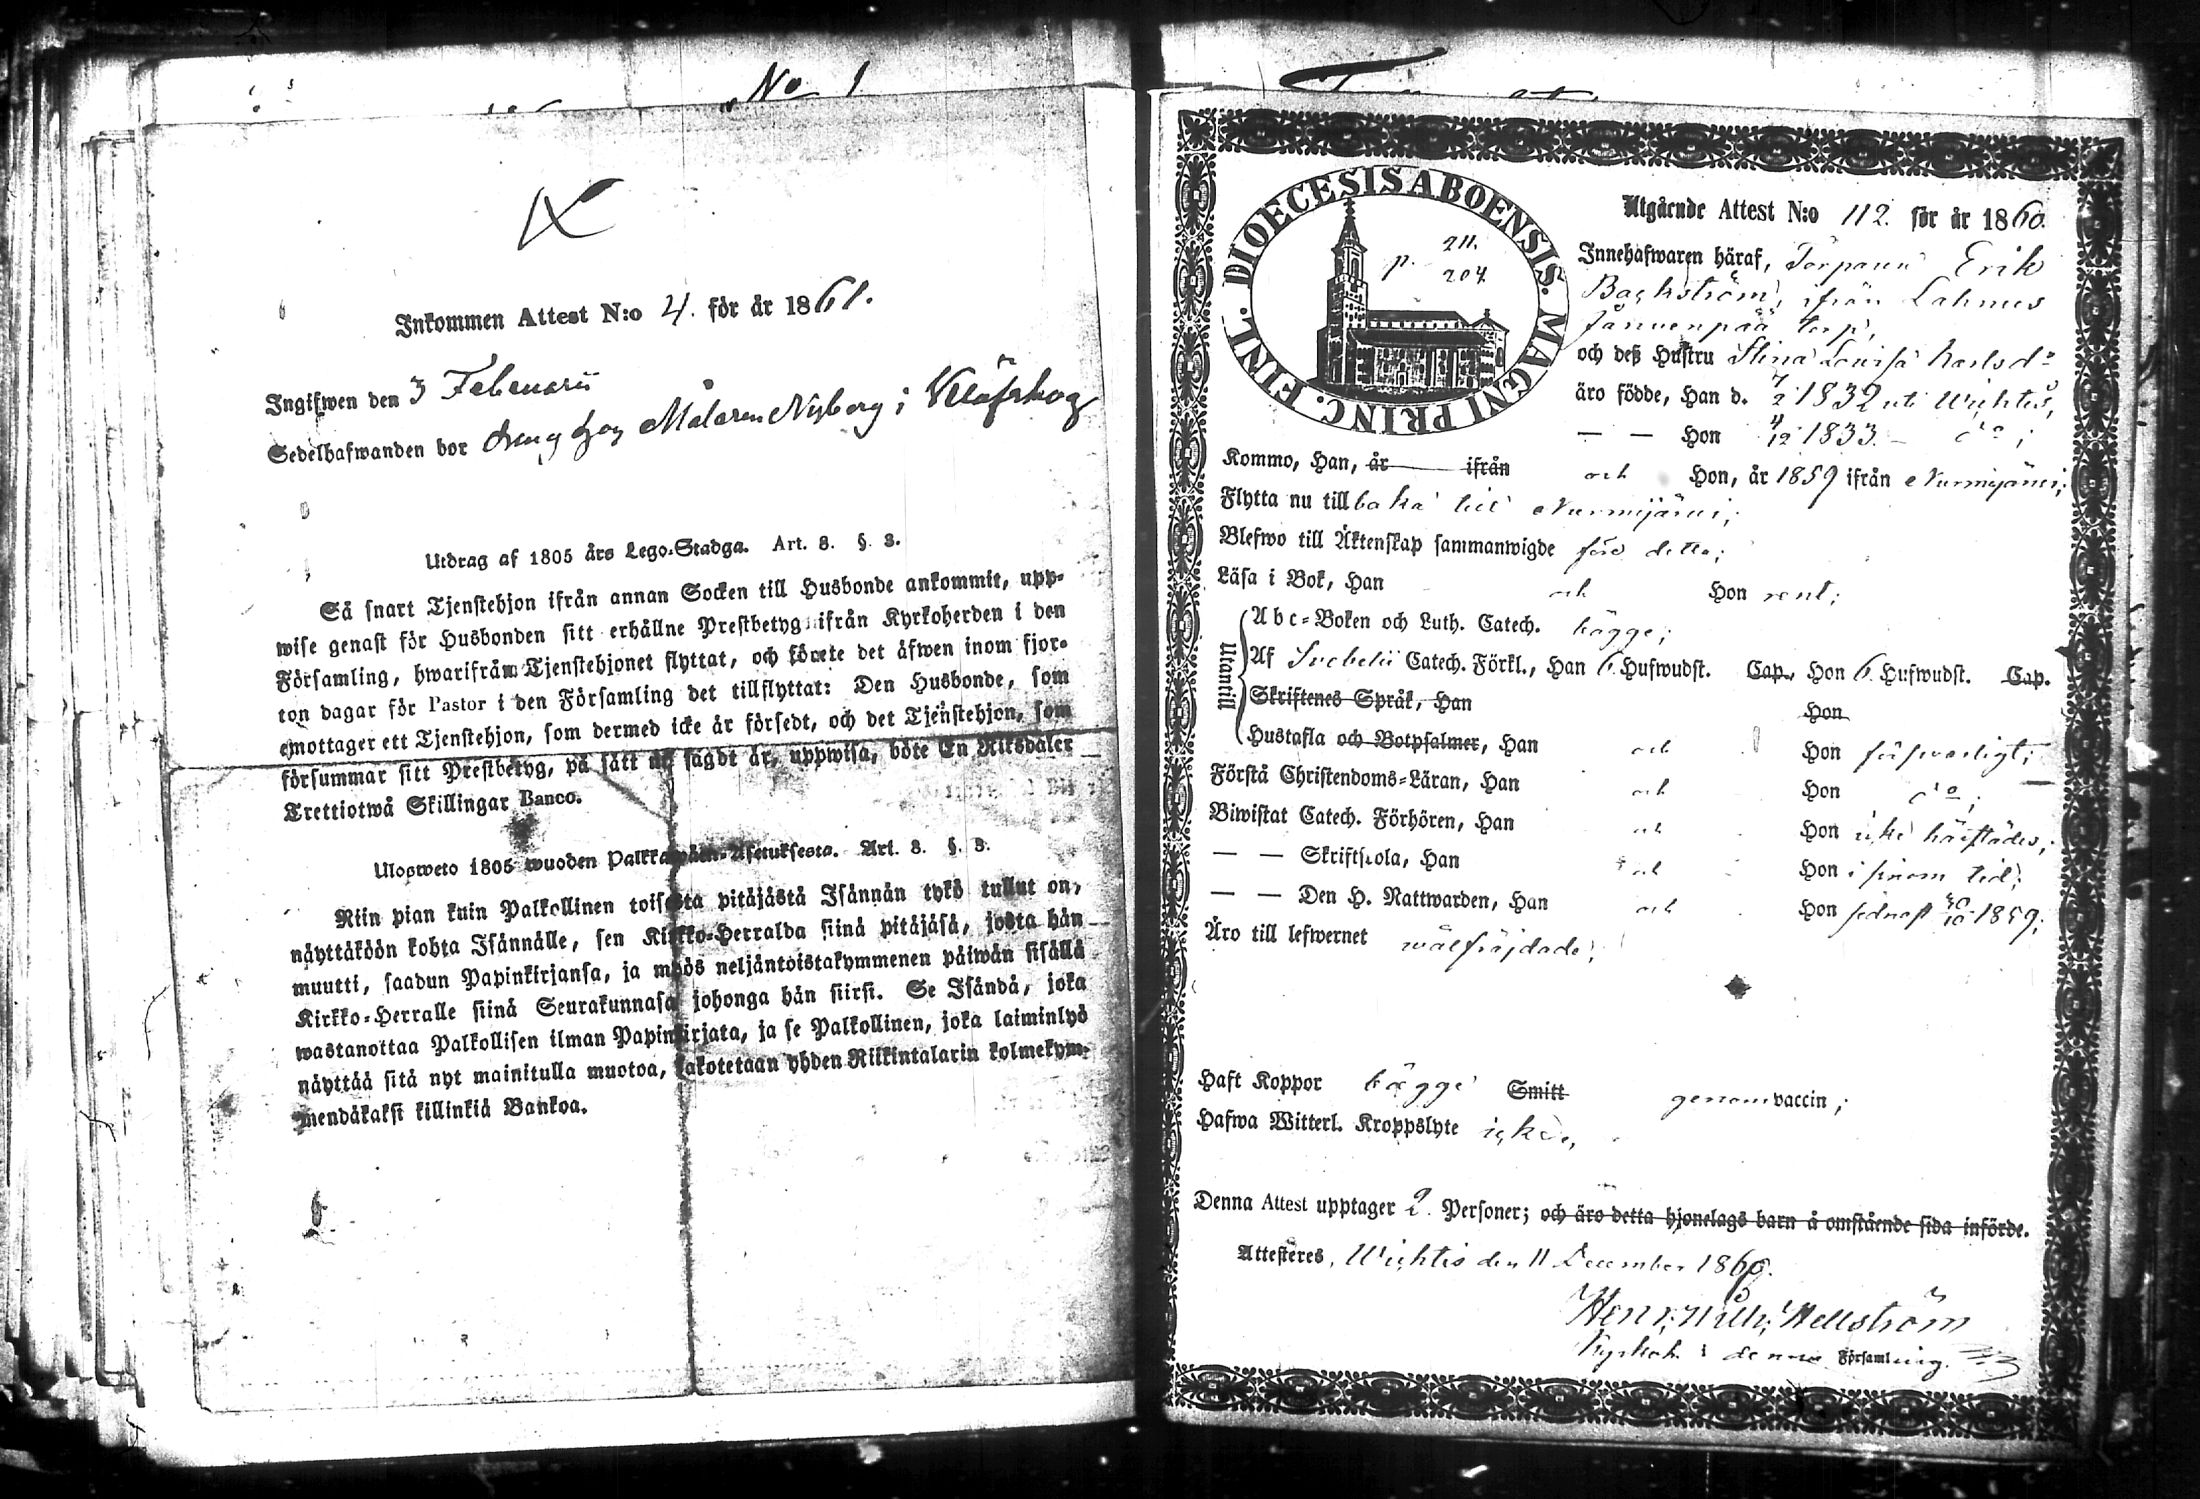 No 1
Inkommen Attest N:o 4. för år 1861.
Ingifwen den 3 Februarii
Sedelhafwanden bor dreng hoz Målaren Nyberg i Klöfskog
Utdrag af 1805 års Lego-Stadga. Art. 8. §. 3.
Så snart Tjenstehjon ifrån annan Socken till Husbonde ankommit, upp-
wise genast för Husbonden sitt erhållne Prestbetyg ifrån Kyrkoherden i den
Församling, hwarifrån Tjenstehjonet flyttat, och förete det äfwen inom fjor-
ton dagar för Pastor i den Församling det tillflyttat: Den Husbonde, som
emottager ett Tjenstehjon, som dermed icke är försedt, och det Tjenstehjon, som
försummar sitt Prestbetyg, på sätt nu sagdt är, uppwisa, böte En Riksdaler
Trettiotwå Skillingar Banco.
Ulosweto 1805 wuoden Palkkawäen-Asetuksesta. Art. 8. §. 3.
Niin pian kuin Palkollinen toisesta pitäjästä Isännän tykö tullut on,
näyttäköön kohta Isännälle, sen Kirkko-Herralda siinä pitäjäsä, josta hän
muutti, saadun Papinkirjansa, ja myös neljäntoistakymmenen päiwän sisällä
Kirkko-Herralle siinä Seurakunnasa johonga hän siirsi. Se Isändä, joka
wastanottaa Palkollisen ilman Papinkirjata, ja se Palkollinen, joka laiminlyö
näyttää sitä nyt mainitulla muotoa, sakotetaan yhden Riikintalarin kolmekym-
mendäkaksi killinkiä Bankoa.
DIOECESIS ABOENSIS. MAGNI PRINC. FINL.
p. 211.
204
Utgående Attest N:o 112. för år 1860.
Innehafwaren häraf, Torparen Erik
Backström, ifrån Lahnus
Janvenpää torp,
och deß Hustru Stina Lovisa Karlsdr
äro födde, Han d. 7/2 1832 uti Wichtis,
— — Hon 4/12 1833. — do;
Kommo, Han, år ifrån och Hon, år 1859 ifrån Nurmijärvi;
Flytta nu tillbaka till Nurmijärvi;
Blefwo till Äktenskap sammanwigde före detta;
Läsa i Bok, Han och Hon rent;
Utantill
Abc-Boken och Luth. Catech. bägge;
Af Svebelii Catech. Förkl., Han 6. Hufwudst. Cap., Hon 6. Hufwudst. Cap.
Skriftenes Språk, Han Hon
Hustafla och Botpsalmer, Han och Hon försvarligt;
Förstå Christendoms-Läran, Han och Hon do;
Biwistat Catech. Förhören, Han och Hon icke härstädes;
— — Skriftskola, Han och Hon i sinom tid;
— — Den H. Nattwarden, Han och Hon sednast 30/10 1859;
Äro till lefwernet wälfräjdade;
Haft Koppor bägge Smitt genom vaccin;
Hafwa Witterl. Kroppslyte icke,
Denna Attest upptager 2. Personer; och äro detta hjonelags barn å omstående sida införde.
Attesteres, Wichtis den 11 December 1860.
Henr. Wilh. Hellström
Kyrkoh. i denna Församling.